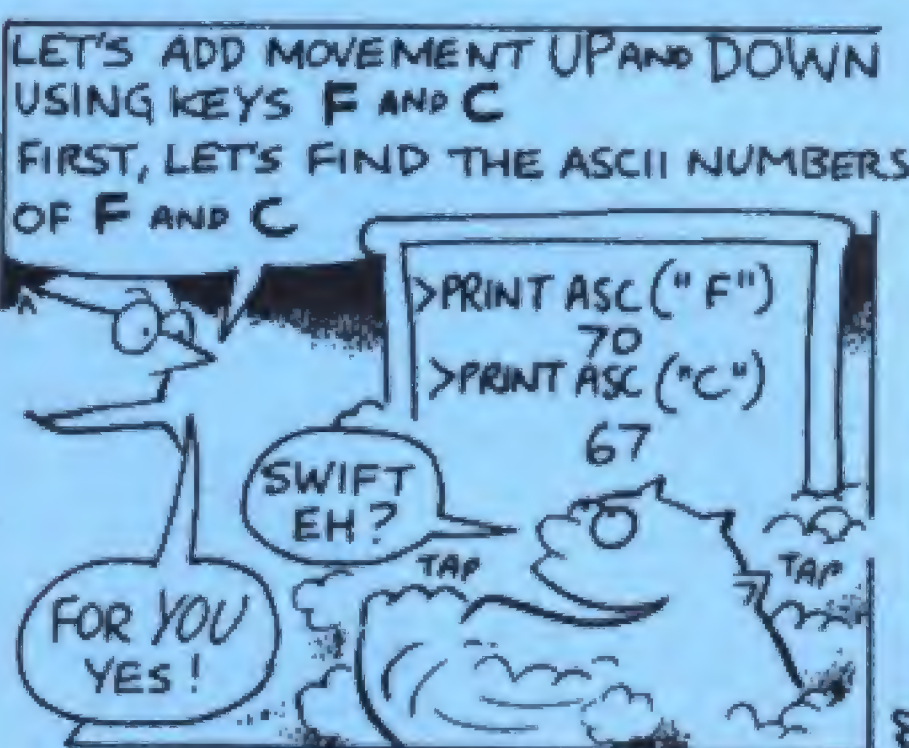 LET'S ADD MOVEMENT UP AND DOWN
USING KEYS F AND C
FIRST, LET'S FIND THE ASCII NUMBERS
OF F AND C
>PRINT ASC ("F")
70
>PRINT ASC ("C")
67
SWIFT
EH?
TAP
TAP
FOR YOU
YES!